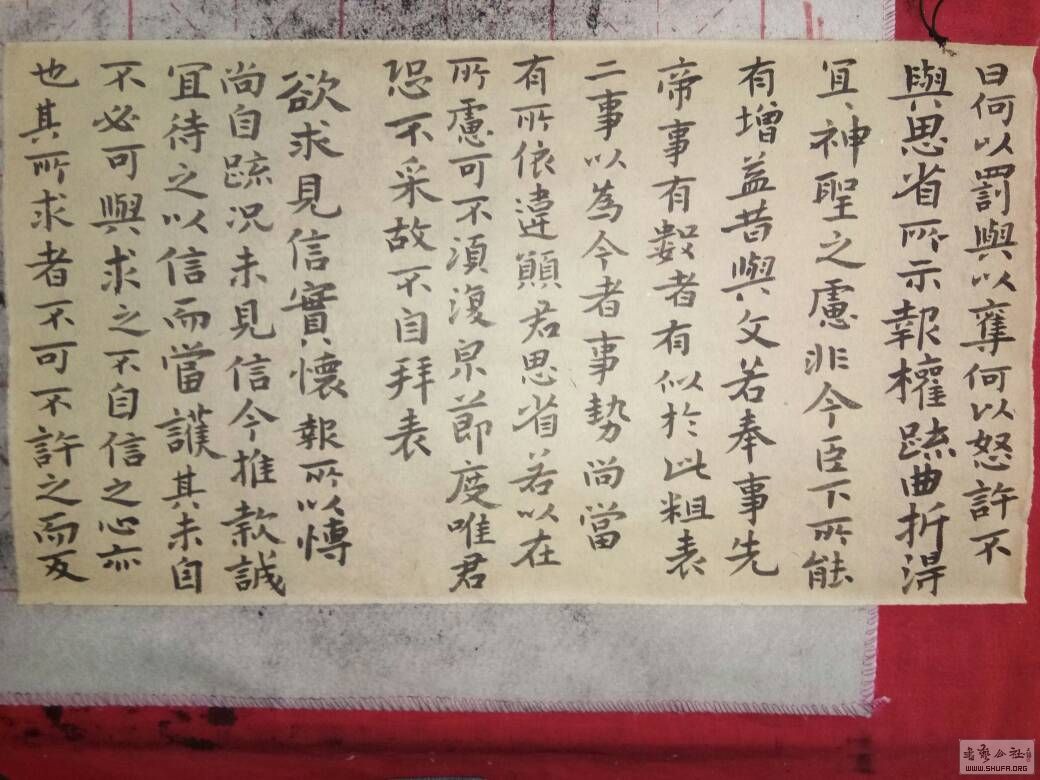 曰何以罰與以奪何以怒許不
與思省所示報權疏曲折得
宜、神聖之慮非今臣下所能
有增益昔與文若奉事先
帝事有數者有似於此粗表
二事以為今者事勢尚當
有所依違願君思省若以在
所慮可不須復㒵節度唯君
恐不采故不自拜表
欲求見信實懷報所以慱
尚自疏况未見信今推款誠
宜待之以信而當護其未自
不必可與求之不自信之心亦
也其所求者不可不許之而反
書藝公社
WWW.SHUFA.ORG